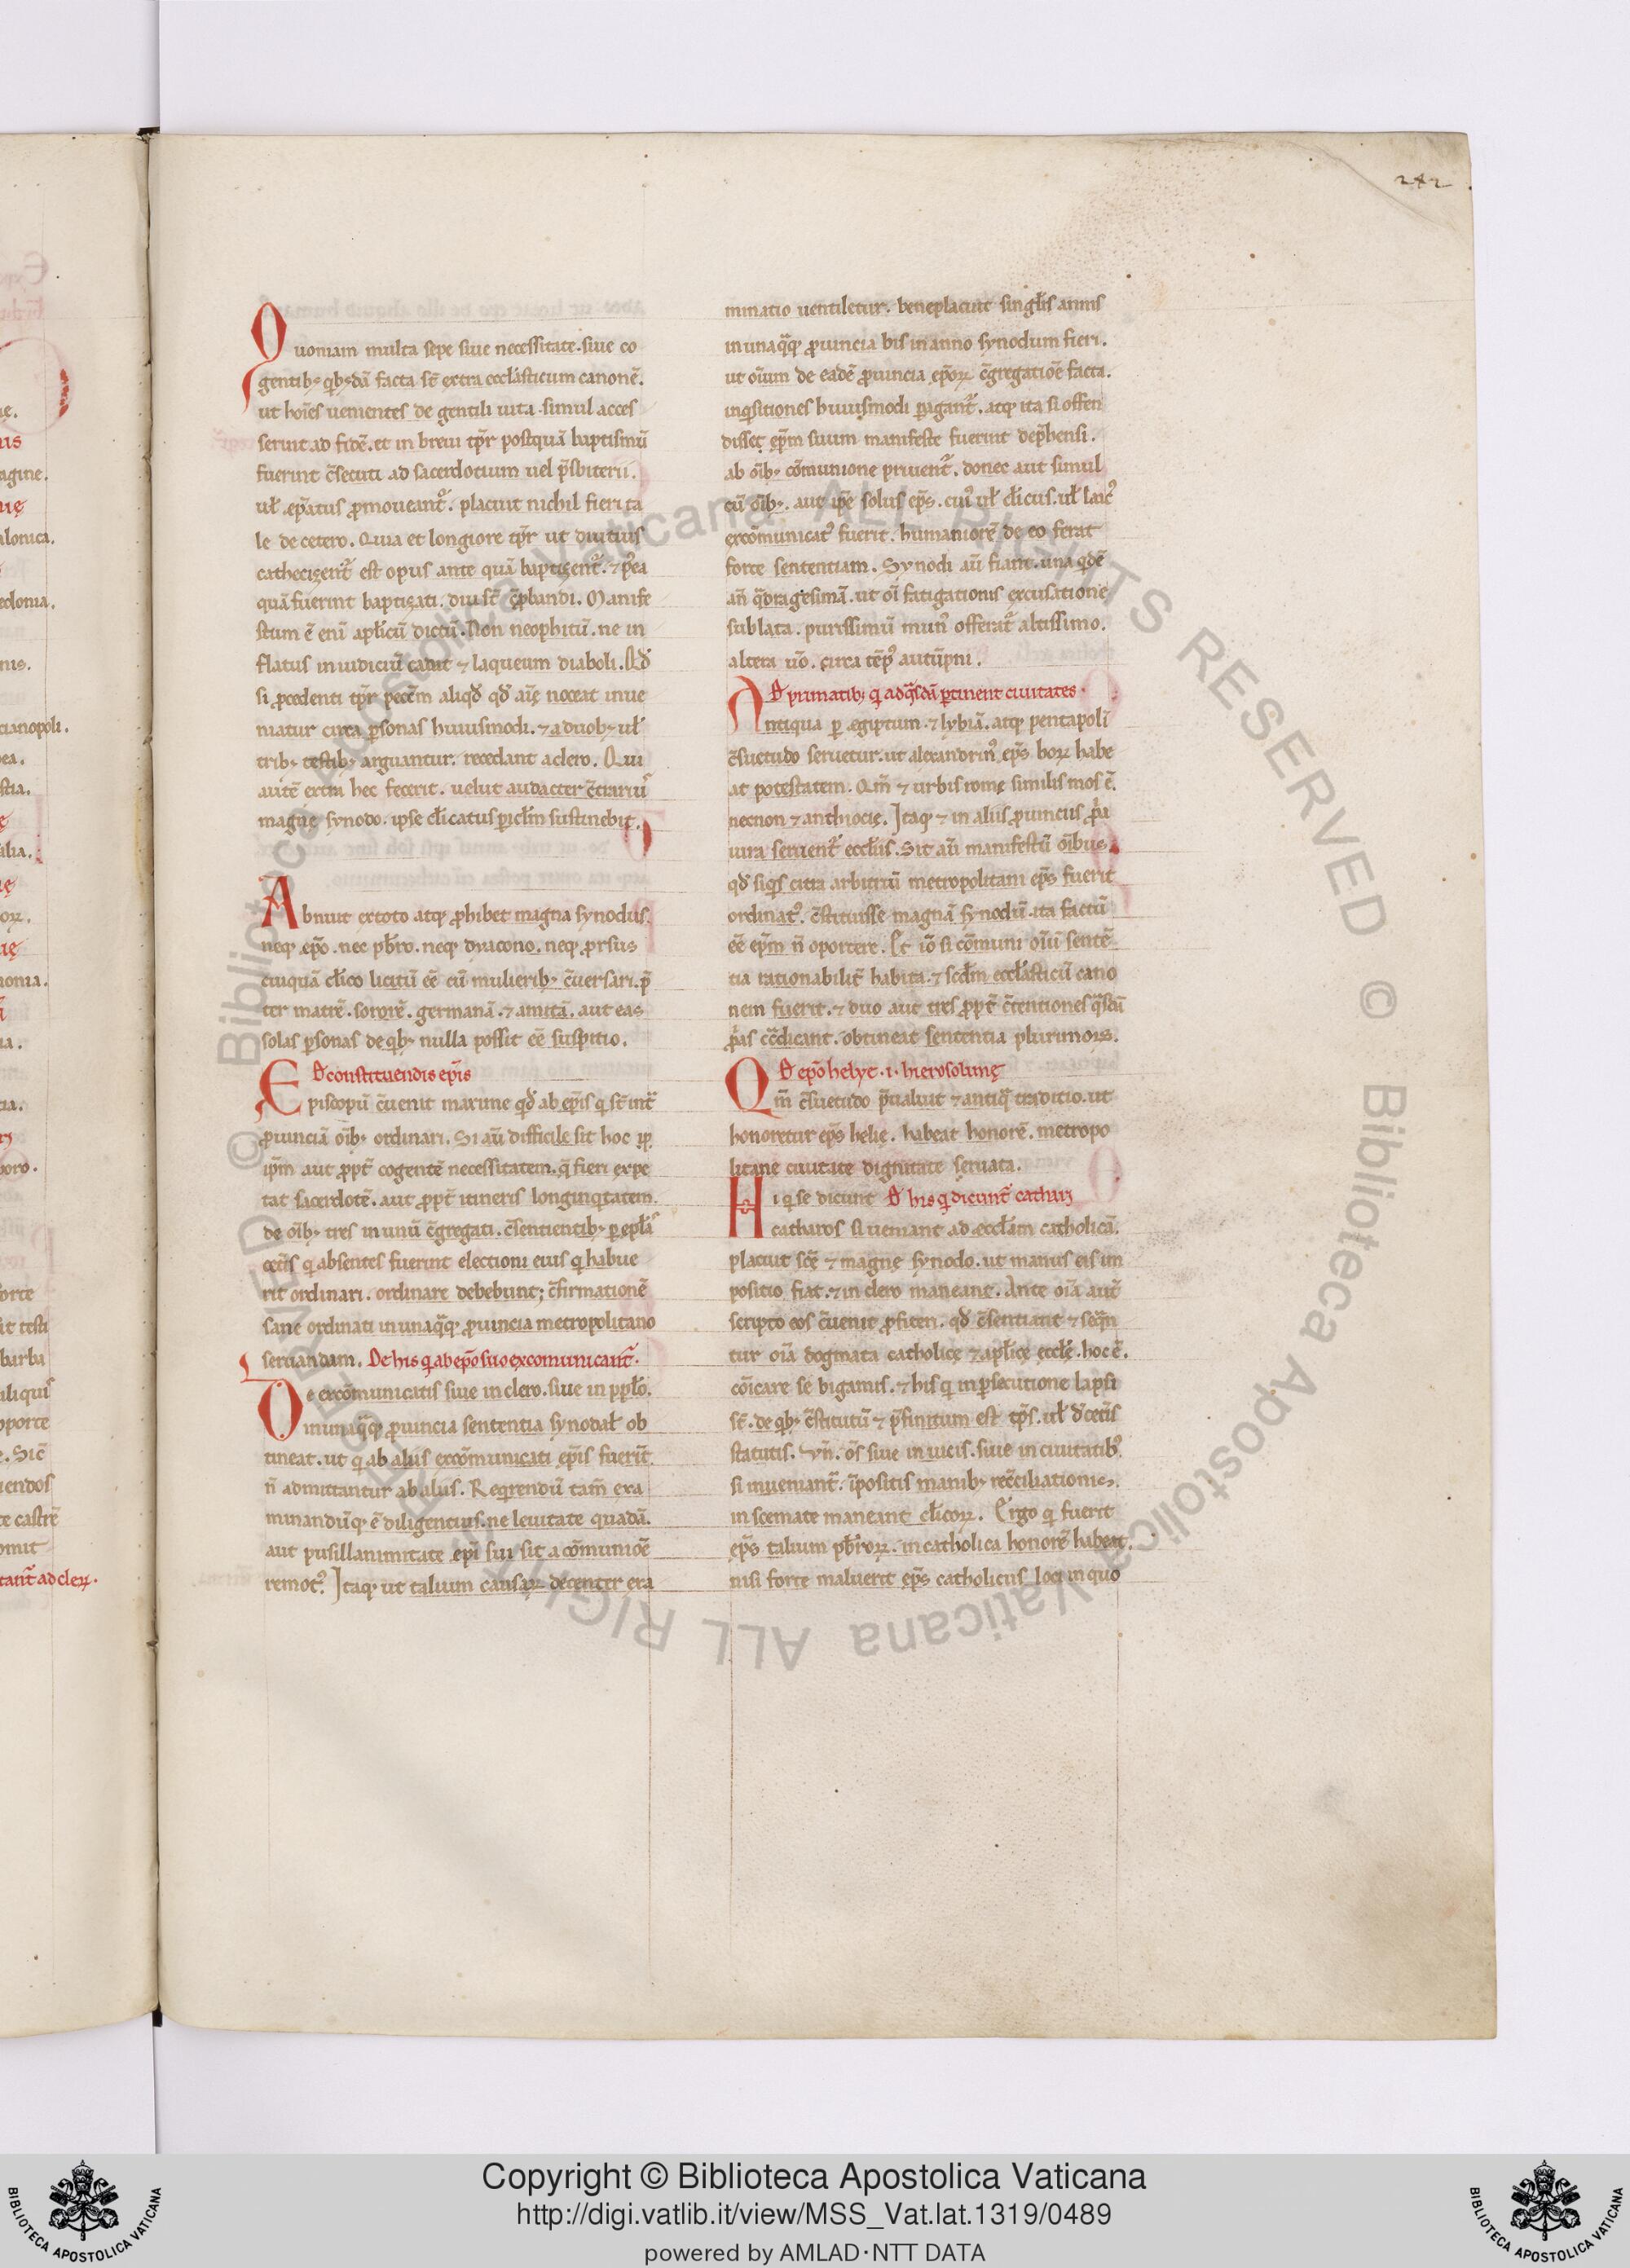 242
Quoniam multa sepe siue necessitate. siue co
gentibꝫ qbꝫdā facta st̄ extra eccl̓asticum canonē.
ut hoīes uenientes de gentili uita simul acces
serint ad fidē. et in breui tp̄r postquā baptismū
fuerint c̄secuti ad sacerdotium uel p̄sbiterii.
ul̓ ep̄atus ꝓmoueant᷑. placuit nichil fieri ta
le de cetero. Quia et longiore tp̄r ut diutius
cathecizent᷑ est opus ante quā baptizent᷑. ⁊ p̓ea
quā fuerint baptizati. diu st̄ c̄ꝓbandi. Manife
stum ē enī apl̓icū dictū. Non neophitū. ne in
flatus in iudiciū cadat ⁊ laqueum diaboli. Qd̓
si ꝓcedenti tp̄r pecc̄m aliqd̓ qd̓ aīę noceat inue
niatur circa ꝑsonas huiusmodi. ⁊ a duobꝫ ul̓
tribꝫ testibꝫ arguantur. recedant a clero. Qui
autē extra hec fecerit. uelut audacter c̄trariū
magnę synodo. ipse cl̓icatus ꝑicl̓m sustinebit.
Abnuit ex toto atqꝫ ꝓhibet magna synodus.
neqꝫ ep̄o. nec pb̓ro. neqꝫ diacono. neqꝫ ꝓrsus
cuiquā cl̓ico licitū eē cū mulieribꝫ c̄uersari. p̄
ter matrē. sororē. germanā. ⁊ amitā. aut eas
solas ꝑsonas de qbꝫ nulla possit eē suspitio.
D̓ constituendis ep̄is
Episcopū c̄uenit maxime qd̓ ab ep̄is q st̄ int̓
ꝓuinciā oībꝫ ordinari. Si aū difficile sit hoc ip̄
ip̄m aut ꝓpt̓ cogentē necessitatem. q̄ fieri expe
tat sacerdotē. aut ꝓpt̓ itineris longinqtatem.
de oībꝫ tres in unū c̄gregati. c̄sentientibꝫ ꝑ epl̓as
cet̓is q absentes fuerint electioni eius q habue
rit ordinari. ordinare debebunt; c̄firmationē
sane ordinati in unaq̄qꝫ ꝓuincia metropolitano
seruandam. De his q ab ep̄o suo excomunicant᷑.
De excōmunicatis siue in clero. siue in ppl̓o.
in unaq̄qꝫ ꝓuincia sententia synodal̓ ob
tineat. ut q ab aliis excōmunicati ep̄is fuerīt
n̄ admittantur ab aliis. Reqrendū tam̄ exa
minandūqꝫ ē diligentius. ne leuitate quadā.
aut pusillanimitate epī sui sit a cōmunioē
remotꝰ. Itaqꝫ ut talium causaꝝ decenter exa
minatio uentiletur. beneplacuit singl̓is annis
in unaq̄qꝫ ꝓuincia bis in anno synodum fieri.
ut oīum de eadē ꝓuincia ep̄oꝝ c̄gregatioē facta.
inqsitiones huiusmodi ꝑagant᷑. atqꝫ ita si offen
disse ep̄m suum manifeste fuerint dep̄hensi.
ab oībꝫ cōmunione priuent᷑. donec aut simul
cū oībꝫ. aut ip̄e solus ep̄s. cuiꝰ ul̓ cl̓icus. ul̓ laicꝰ
excōmunicatꝰ fuerit. humaniorē de eo ferat
forte sententiam. Synodi aū fiant. una qdē
an̄ q̄dragesimā. ut oī fatigationis excusatione
sublata. purissimū munꝰ offerat᷑ altissimo.
altera u̓o. circa tēpꝰ autūpni.
D̓ primatibꝫ q ad q̄sdā ꝑtinent ciuitates.
Antiqua ꝑ ægiptum. ⁊ lybiā. atqꝫ pentapolī
c̄suetudo seruetur. ut alexandrinꝰ ep̄s hoꝝ habe
at potestatem. Qm̄ ⁊ urbis romę similis mos ē.
necnon ⁊ anthiocię. Itaqꝫ ⁊ in aliis ꝓuinciis p̓a
uira seruent᷑ eccl̓iis. Sit aū manifestū oībus.
qd̓ siqs citra arbitriū metropolitani ep̄s fuerit
ordinatꝰ. c̄stituisse magnā synodū. ita factū
eē ep̄m n̄ oportere. Et iō si cōmuni oīū sentē
tia rationabilit̓ habita. ⁊ scd̓m eccl̓asticū cano
nem fuerit. ⁊ duo aut tres ꝓpt̓ c̄tentiones q̄sdā
p̓as c̄tradicant. obtineat sententia plurimoꝝ.
D̓ ep̄o helye .i. hierosolimę
Qm̄ c̄suetudo p̄ualuit ⁊ antiq̄ traditio. ut
honoretur ep̄s helie. habeat honorē. metropo
litane ciuitate dignitate seruata.
Hi q se dicunt D̓ his q dicunt᷑ cathari
catharos si ueniant ad æccl̓am catholicā.
placuit sc̄ę ⁊ magnę synodo. ut manus eis im
positio fiat. ⁊ in clero maneant. Ante oīa aut̓
scripto eos c̄uenit ꝓfiteri. qd̓ c̄sentiant ⁊ seqn̄
tur oīa dogmata catholicę ⁊ apl̓icę eccl̓ę. hoc ē.
cōicare se bigamis. ⁊ his q in ꝑsecutione lapsi
st̄. de qbꝫ c̄stitutū ⁊ p̄finitum est tp̄s. ul̓ d̓ cet̓is
statutis. Vn̄. oēs siue in uicis. siue in ciuitatibꝰ.
si inueniant᷑. īpositis manibꝫ recc̄iliationis.
in scemate maneant cl̓icoꝝ. Ergo q fuerit
ep̄s talium pb̓roꝝ. in catholica honorē habeat.
nisi forte maluerit ep̄s catholicus loci in quo
Copyright © Biblioteca Apostolica Vaticana
http://digi.vatlib.it/view/MSS_Vat.lat.1319/0489
powered by AMLAD·NTT DATA
BIBLIOTECA APOSTOLICA VATICANA
BIBLIOTECA APOSTOLICA VATICANA
© Biblioteca Apostolica Vaticana ALL RIGHTS RESERVED © Biblioteca Apostolica Vaticana ALL RIGHTS RESERVED